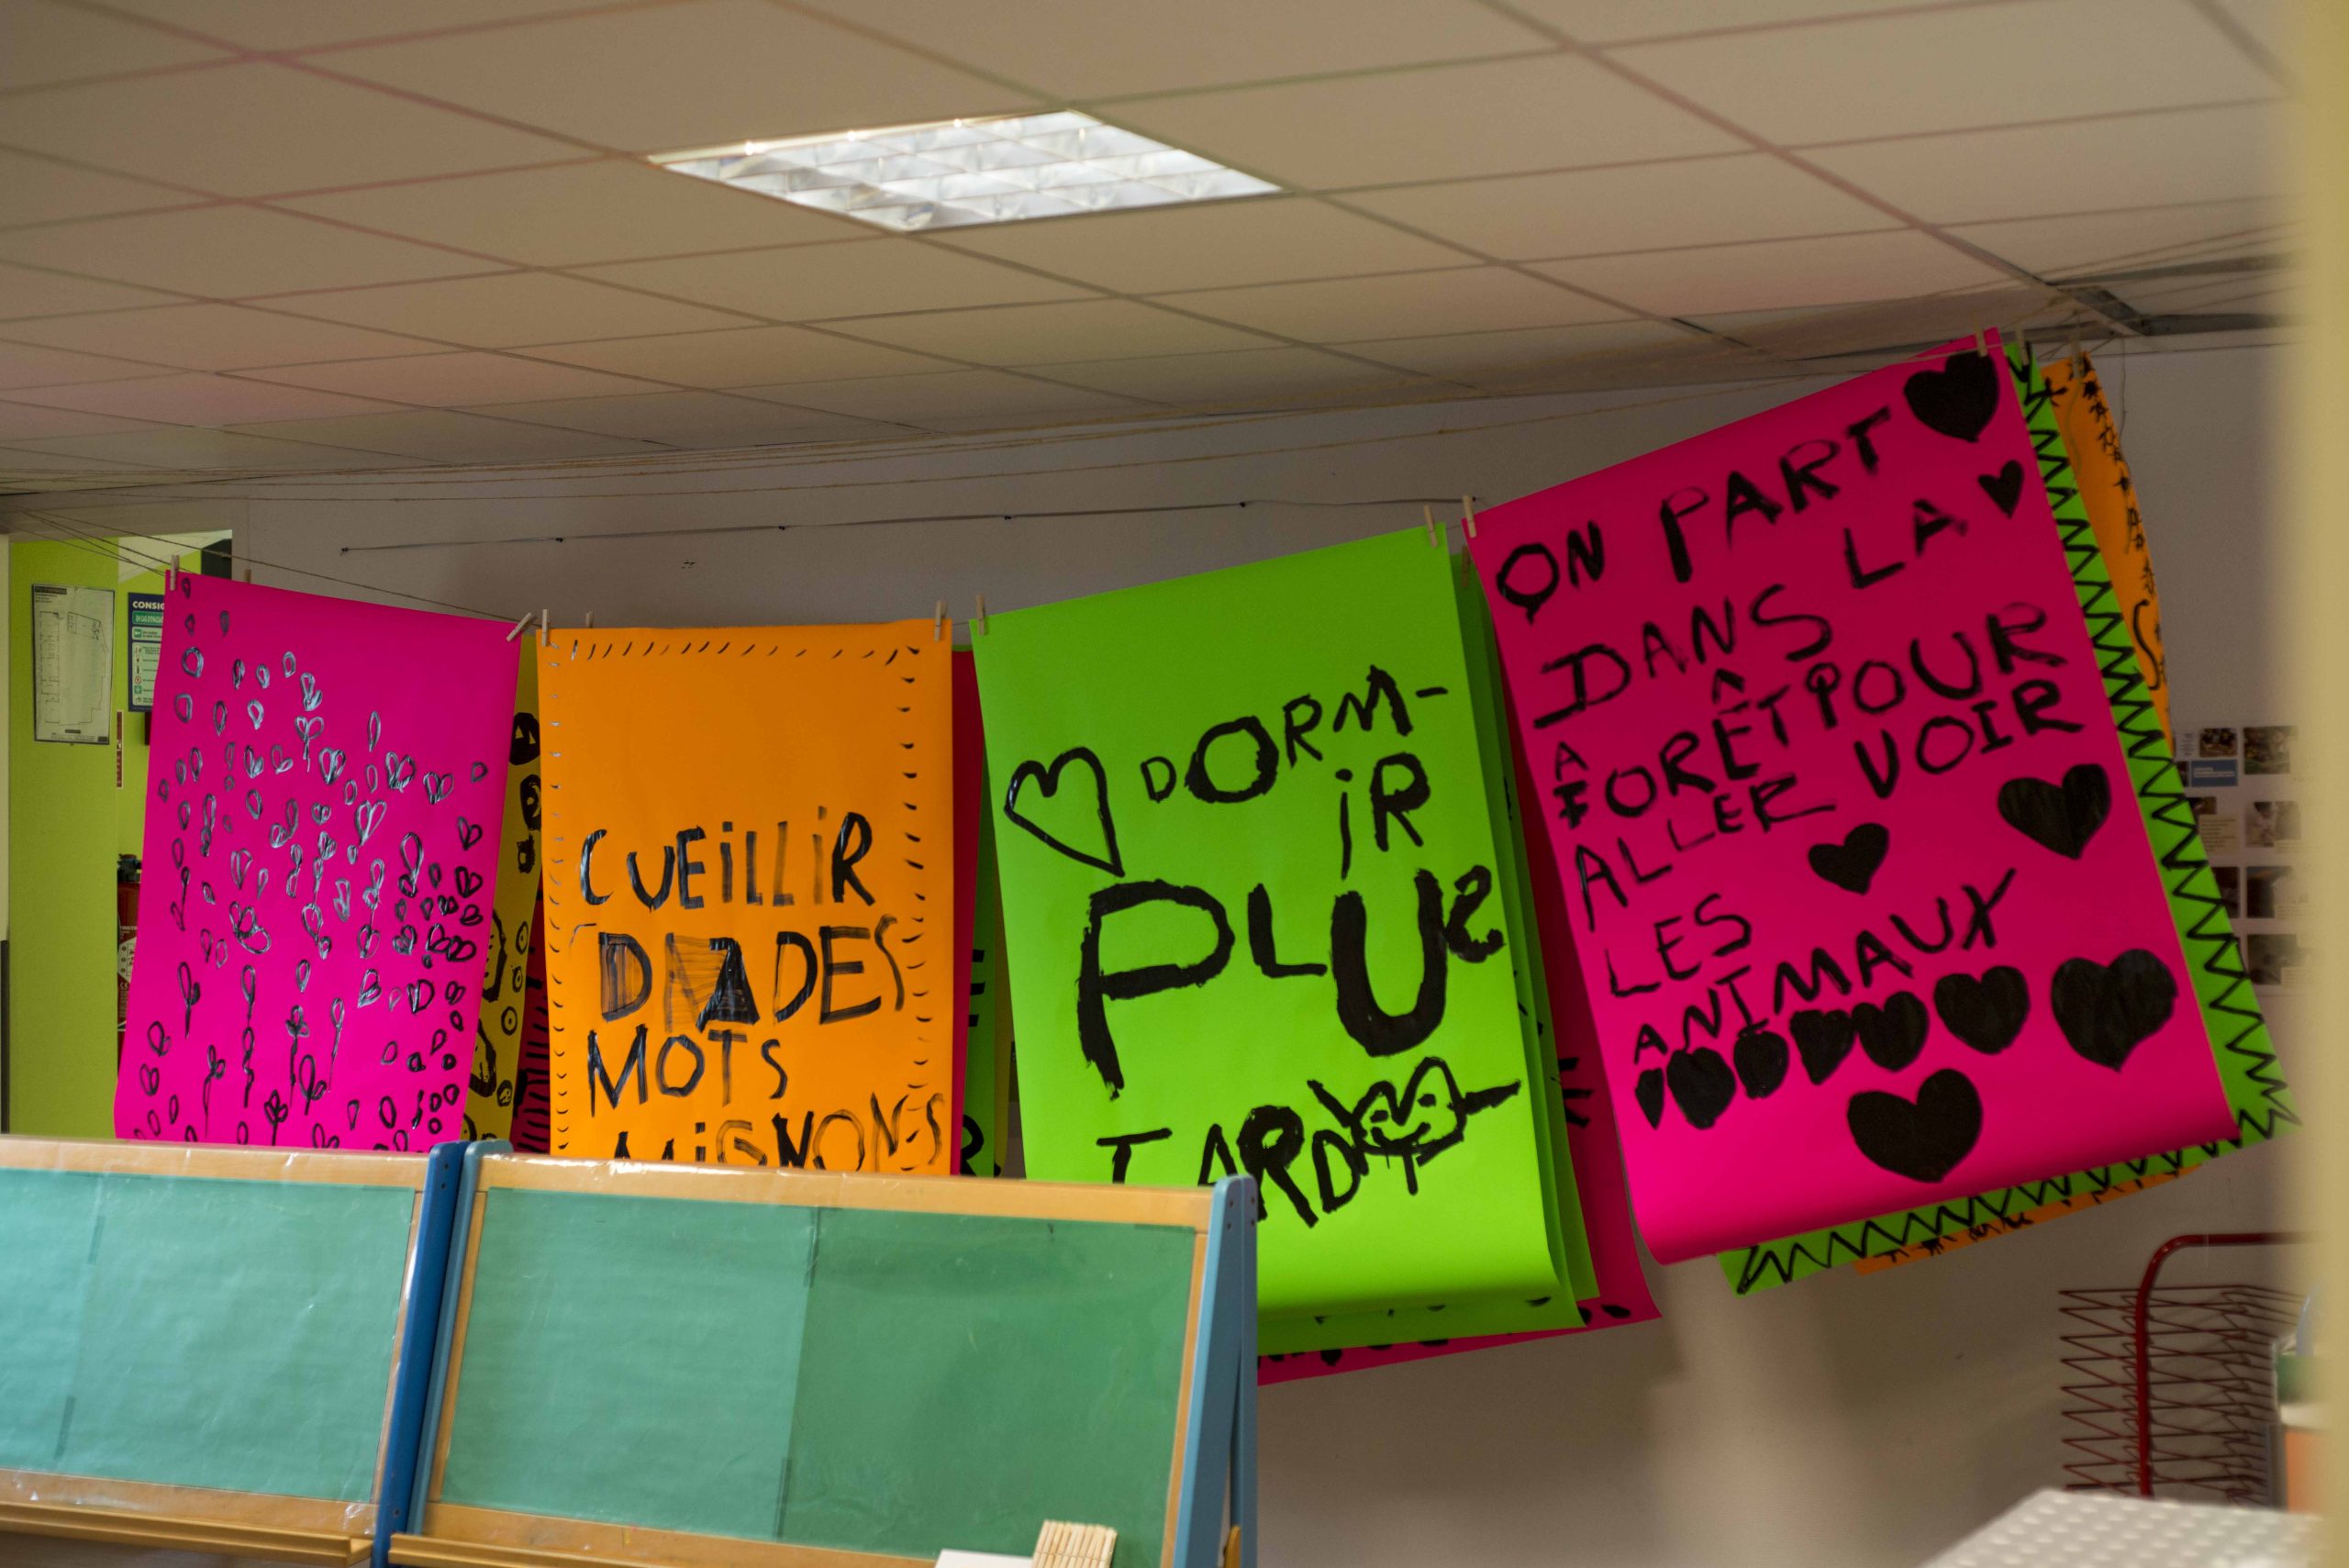 CONSIG
CUEILLIR
DADES
MOTS
MIGNONS
DORM-
iR
PLUS
TARD
ON PART
DANS LA
FORÊT POUR
ALLER VOIR
LES
ANIMAUX